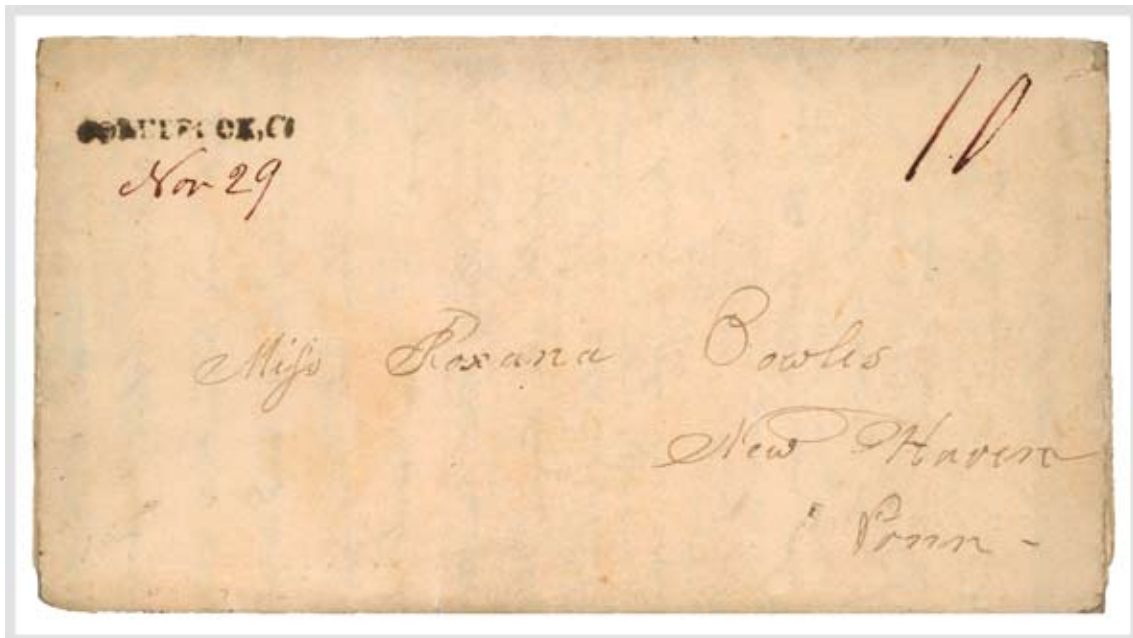 10
Nov 29
Miſs Roxana Bowles
New Haven
Conn -